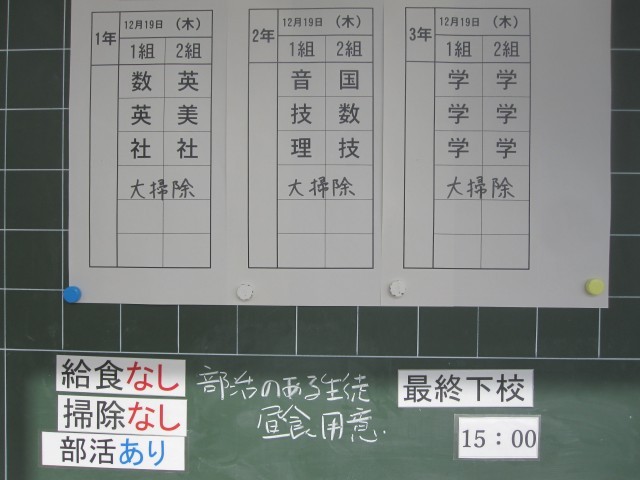 1年 12月19日 (木)
1組 2組
数 英
英 美
社 社
大掃除
2年 12月19日 (木)
1組 2組
音 国
技 数
理 技
大掃除
3年 12月19日 (木)
1組 2組
学 学
学 学
学 学
大掃除
給食なし
掃除なし
部活あり
部活のある生徒
昼食用意.
最終下校
15:00